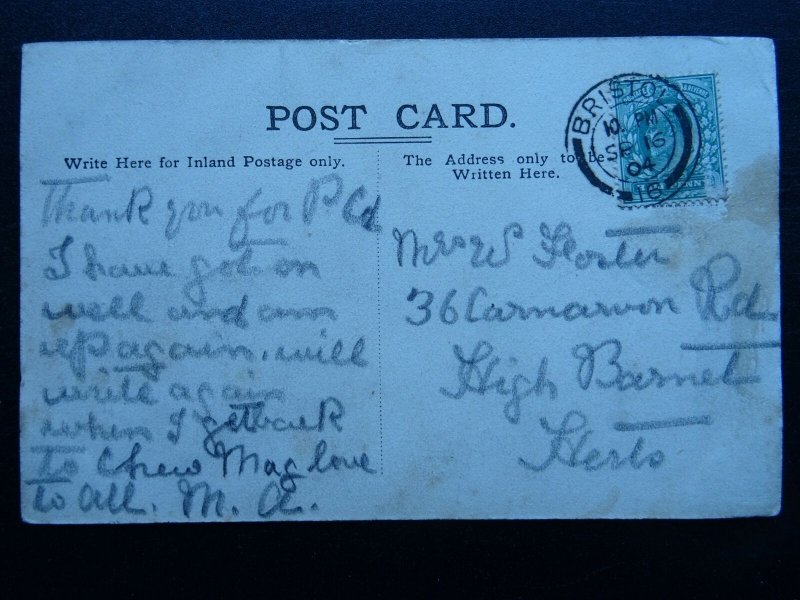 POST CARD.
Write Here for Inland Postage only.
The Address only to be
Written Here.
BRISTOL
10 PM
SP 16
04
16
Thank you for P Cd
I have got on
well and am
up again. will
write again
when I get back
to Chew Mag love
to all. M. A.
Mrs W Foster
36 Carnarvon Rd
High Barnet
Herts